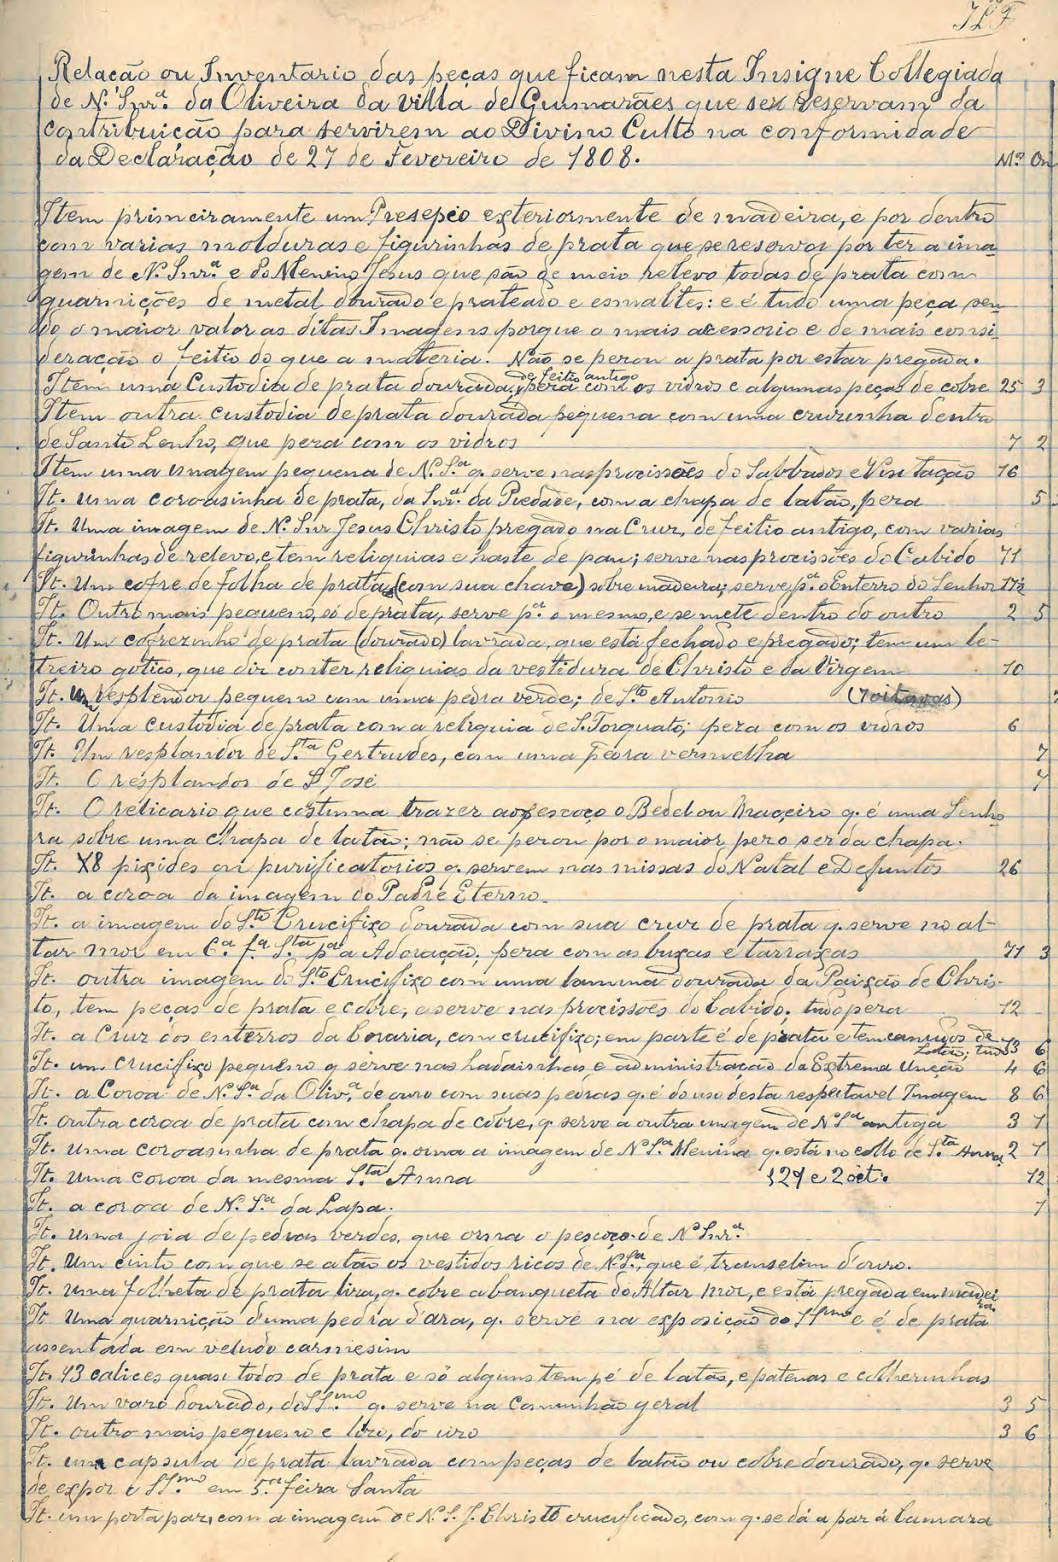 Relação ou Inventario das peças que ficam nesta Insigne Collegiada
de N.ª Snr.ª da Oliveira da villa de Guimarães que se reservam da
contribuição para servirem ao Divino Culto na conformidade
da Declaração de 27 de Fevereiro de 1808. M.os On
Item primeiramente um Presepio exteriormente de madeira, e por dentro
com varias molduras e figurinhas de prata que se reservou por ter a ima-
gem de N. Snr.ª e do Menino Jesus que são de meio relevo todas de prata com
guarnições de metal dourado e prateado e esmaltes: e é tudo uma peça sen-
do o maior valor as ditas Imagens porque o mais accessorio e de mais consi-
deração o feitio do que a materia. Não se pezou a prata por estar pregada.
de feitio antigo
Item uma Custodia de prata dourada, peza com os vidros e algumas peças de cobre 25 3
Item outra custodia de prata dourada pequena com uma cruzinha dentro
de Santo Lenho, que peza com os vidros 7 2
Item uma imagem pequena de N. S.ª q. serve nas procissões do Sabbados e Visitação 16
It. uma coroasinha de prata, da Snr.ª da Piedade, com a chapa de latão, peza 5
It. Uma imagem de N. Snr Jesus Christo pregado na Cruz, de feitio antigo, com varias
figurinhas de relevo, e tem reliquias e haste de pau; serve nas procissões do Cabido 11
It. Um cofre de folha de prata (com sua chave) sobre madeira; serve p.ª o Enterro do Senhor 17½
It. Outro mais pequeno, só de prata, serve p.ª o mesmo, e se mete dentro do outro 2 5
It. Um cofrezinho de prata (dourado) lavrada, que está fechado e pregado; tem um le-
treiro gotico, que diz conter reliquias da vestidura de Christo e da Virgem 10
It. Um resplendor pequeno com uma pedra verde; de S.to Antonio (7 oitavas)
It. Uma custodia de prata com a reliquia de S. Torquato; peza com os vidros 6
It. Um resplandor de S.ta Gertrudes, com uma pedra vermelha 7
It. O resplandor de S José 7
It. O relicario que costuma trazer ao pescoço o Bedel ou Maceiro q. é uma Senho-
ra sobre uma chapa de latão; não se pezou por o maior pezo ser da chapa.
It. 18 pixides ou purificatorios q. servem nas missas do Natal e Defuntos 26
It. a coroa da imagem do Padre Eterno.
It. a imagem do S.to Crucifixo dourada com sua cruz de prata q. serve no al-
tar mor em 6.ª f.ª S.ta p.ª a Adoração; peza com as buxas e tarraxas 11 3
It. outra imagem do S.to Crucifixo com uma lamina dourada da Paixão de Chris-
to, tem peças de prata e cobre, e serve nas procissões do Cabido; tudo peza 12
It. a Cruz dos enterros da Coraria, com crucifixo; em parte é de prata e tem canudos de
latão; tudo 13 6
It. um crucifixo pequeno q serve nas ladainhas e administração da Extrema Unção 4 6
It. a Coroa de N. S.ª da Oliv.ª de ouro com suas pedras q. é do uso desta respeitavel Imagem 8 6
It. outra coroa de prata com chapa de cobre, q. serve a outra imagem de N S.ª antiga 3 7
It. uma coroasinha de prata q. orna a imagem de N. S.ª Menina q. está no collo de S.ta Anna 2 7
It. uma coroa da mesma S.ta Anna 12
It. a coroa de N. S.ª da Lapa. 7
It. uma joia de pedras verdes, que orna o pescoço de N. Snr.ª
It. Um cinto com que se atão os vestidos ricos de N. S.ª, que é transelim d'ouro.
It. uma folheta de prata liza, q. cobre a banqueta do Altar Mor, e está pregada em madei
ra.
It. Uma guarnição d'uma pedra d'ara, q. serve na exposição do S.smo e é de prata
assentada em veludo carmesim
It. 43 calices quasi todos de prata e só alguns tem pé de latão, e patenas e colherinhas
It. Um vazo dourado, do SS.mo q. serve na Comunhão geral 3 5
It. outro mais pequeno e lizo, do uzo 3 6
It. uma capsula de prata lavrada com peças de latão ou cobre dourado, q. serve
de expor o SS.mo em 5.ª feira Santa
It. um porta paz, com a imagem de N. S. J. Christo crucificado, com q. se dá a paz á Camara